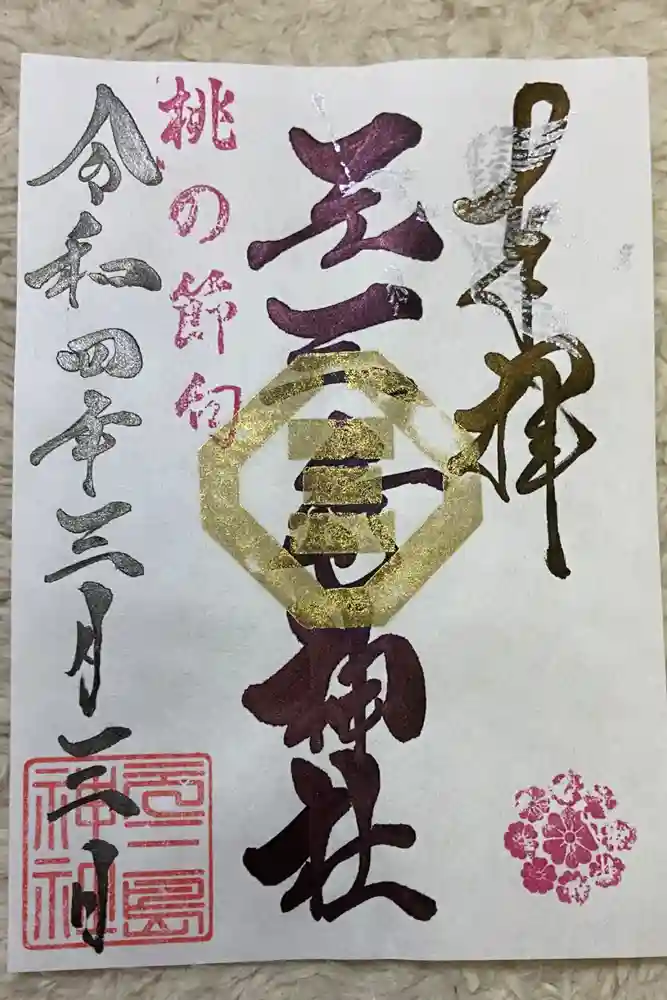 奉拝
元三島神社
桃の節句
令和四年三月三日
元三島
神社